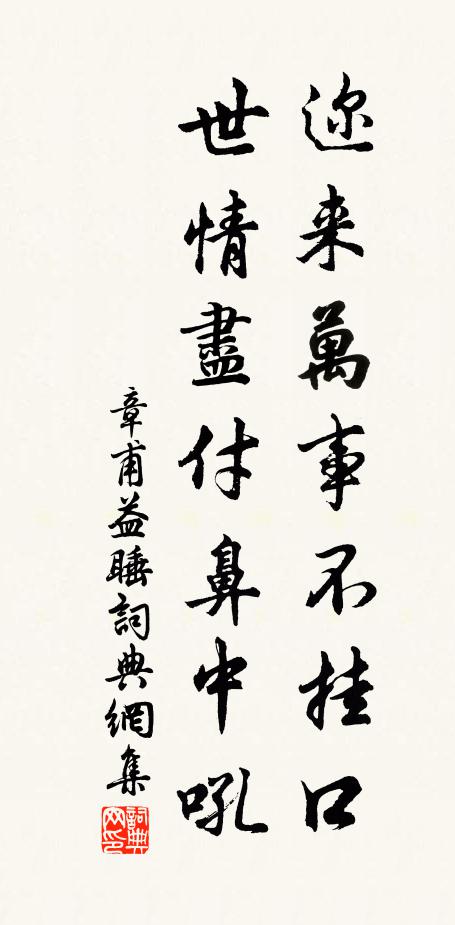 迩来萬事不挂口
世情盡付鼻中吼
章甫益睡詞典網集
詞典网印